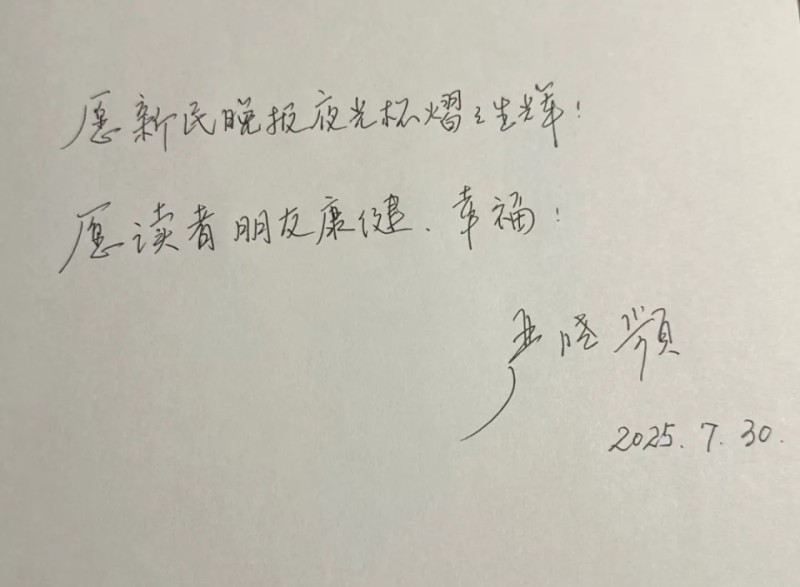 愿新民晚报夜光杯熠熠生辉!
愿读者朋友康健、幸福!
严晓频
2025.7.30.